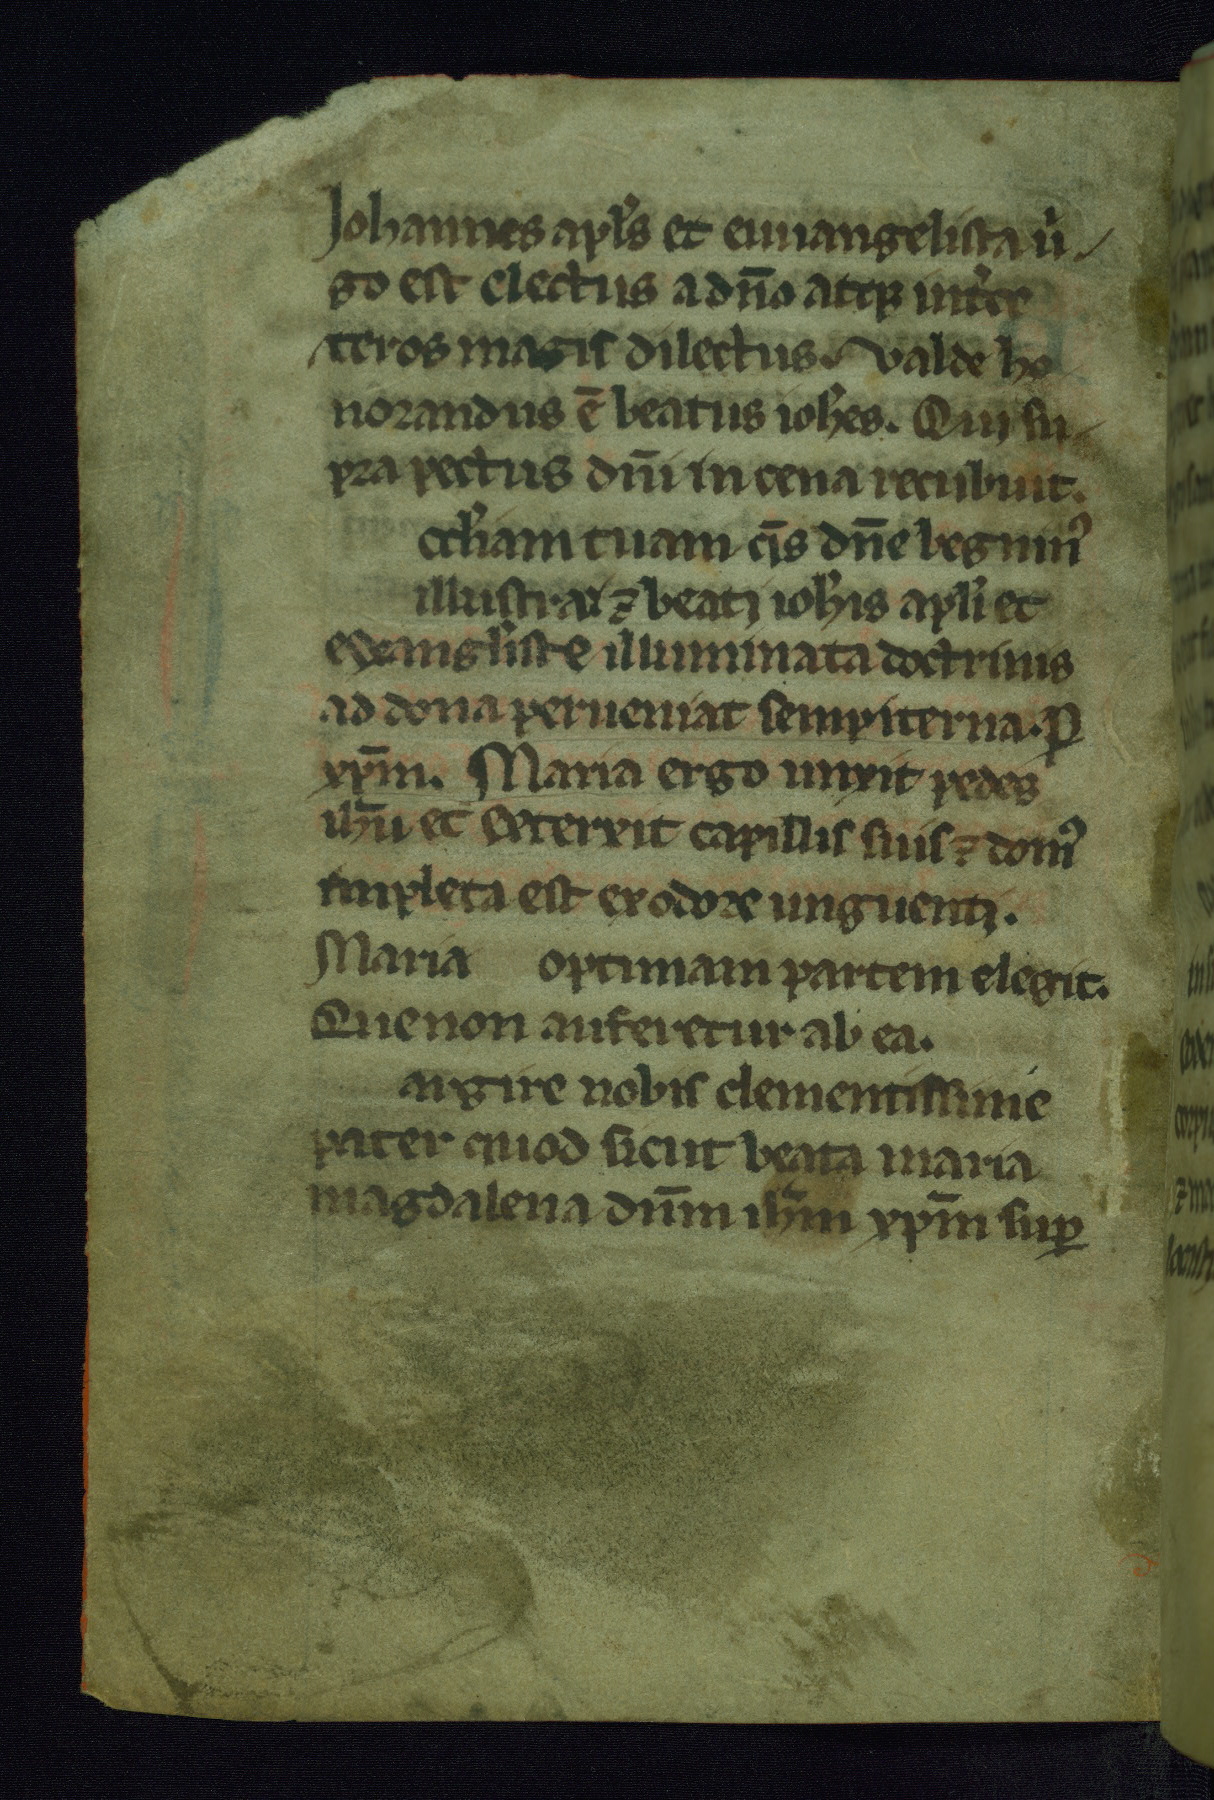 Johannes apl's et euuangelista ui
go est electus a dn̄o atqꝫ int' ce
teros magis dilectus. valde ho
norandus ē beatus ioh'es. Qui su
pra pectus dn̄i in cena recubuit.
ccl'iam tuam qs dn̄e begnin⁹
illustra ut ⁊ beati ioh'is apl'i et
euangl'iste illuminata doctrinis
ad dona perueniat sempiterna. P
xp̄m. Maria ergo unxit pedes
ih̄u et extersit capillis suis ⁊ dom⁹
impleta est ex odore unguenti.
Maria optimam partem elegit.
Que non auferetur ab ea.
argire nobis clementissime
pater quod sicut beata maria
magdalena dn̄m ih̄m xp̄m suꝑ